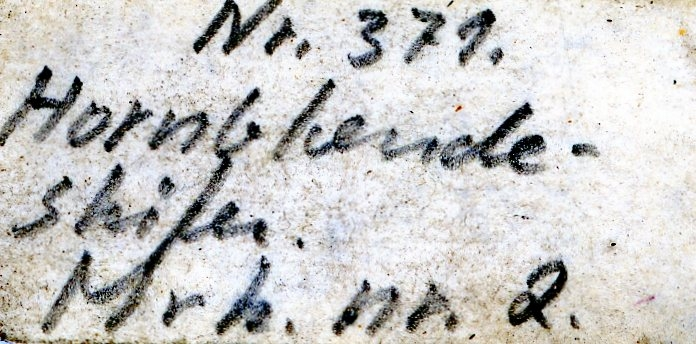 Nr. 371.
Hornblende-
skifer.
Mrh. nr. 2.